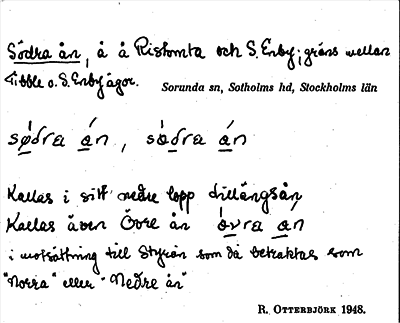 Södra ån, å å Ristomta och S. Enby; gräns mellan
Fibble o. S. Enby ägor.
Sorunda sn, Sotholms hd, Stockholms län
södra án, sòdra án
Kallas i sitt nedre lopp dillängsån,
Kallas även Övre ån òvra án
i motsättning till Styrån som då betraktas som
"Norra" eller "Nedre ån"
R. OTTERBJÖRK 1948.